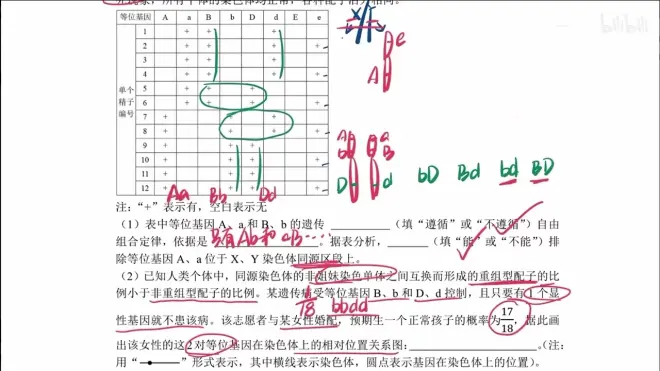 所有个体的染色体均正常，各种配子活力相同。
等位基因 A a B b D d E e
1 + + +
2 + + +
3 + + +
4 + + +
单个精子编号
5 + +
6 + + +
7 + +
8 + + + +
9 + + +
10 + + + +
11 + + +
12 + + + +
Aa Bb Dd
e
A
D d bD Bd bd BD
注：“+”表示有，空白表示无
（1）表中等位基因 A、a 和 B、b 的遗传 （填“遵循”或“不遵循”）自由
组合定律，依据是 只有Ab和aB… 。据表分析， （填“能”或“不能”）排
除等位基因 A、a 位于 X、Y 染色体同源区段上。
（2）已知人类个体中，同源染色体的非姐妹染色单体之间互换而形成的重组型配子的比
例小于非重组型配子的比例。某遗传病受等位基因 B、b 和 D、d 控制，且只要有 1 个显
1/18 bbdd
性基因就不患该病。该志愿者与某女性婚配，预期生一个正常孩子的概率为 17/18，据此画
出该女性的这 2 对等位基因在染色体上的相对位置关系图： 。（注：
用“ ”形式表示，其中横线表示染色体，圆点表示基因在染色体上的位置）。
bilibili